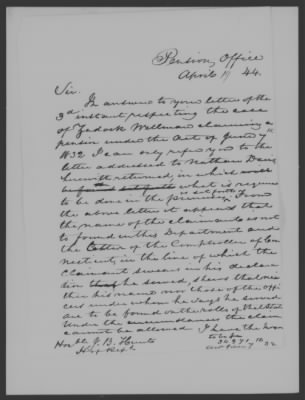 Pension Office
April 11 44.
Sir.
In answer to your letter of the
3d instant, respecting the case
of Zadock Wellman claiming a
pension under the act of June 7th
1832 I can only refer you to the
letter addressed to Nathan
herewith returned, in which
what is required
to be done in the premises. From
is set forth
the above letter it appears that
the name of the claimant is not
to found in this Department and
the letter of the Comptroller of Con
necticut, in the line of which the
Claimant swears in his declara
tion he served, shews that nei
ther his name nor those of the offi
cers under whom he says he served
are to be found on the rolls of that State
Under the circumstances the claim
cannot be allowed I have the honor
to be &c
Honble J. B. Hunt
Ho. of Reps.